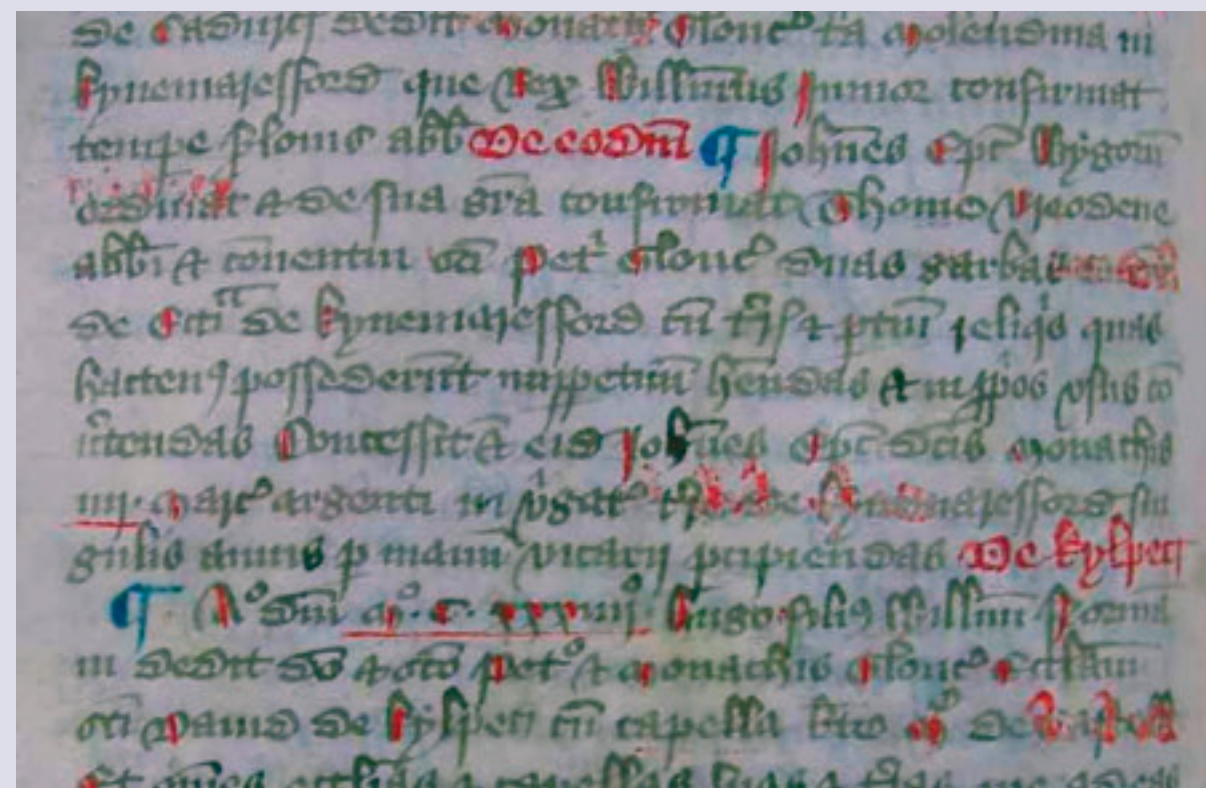 de Cadurcis dedit monachis Glouc' t'ra molendina in
kynemaresford que Rex Willelmus Junior confirmat
tempe s'lonis abb De eodm ¶ Johnes epc Wygorn
ordinat & de sua gra confirmat Thome Viseodene
abbi & conentui sci Petri Glouc' duas garbas
de Ecctia de kynemaresford cu t'ris & ptin reliqis quas
hacten9 possederunt in ppetuu hendas & in ppos vsus co
ntendas Concessit & eid Johnes Epc dcis monachis
iiij. Marc' argenti in de kynemaresford sin
gulis annis p manu vicarij pcipiendas De kylpec
¶ Ao dni Mo. C. xxxiiijo. hugo fili9 Willmi Norma
ni dedit do & sco Peto & monachis Glouc' Eccliam
sci Dauid de kylpec cu capella be Me de
Et omnes ecclias & capellas suas &